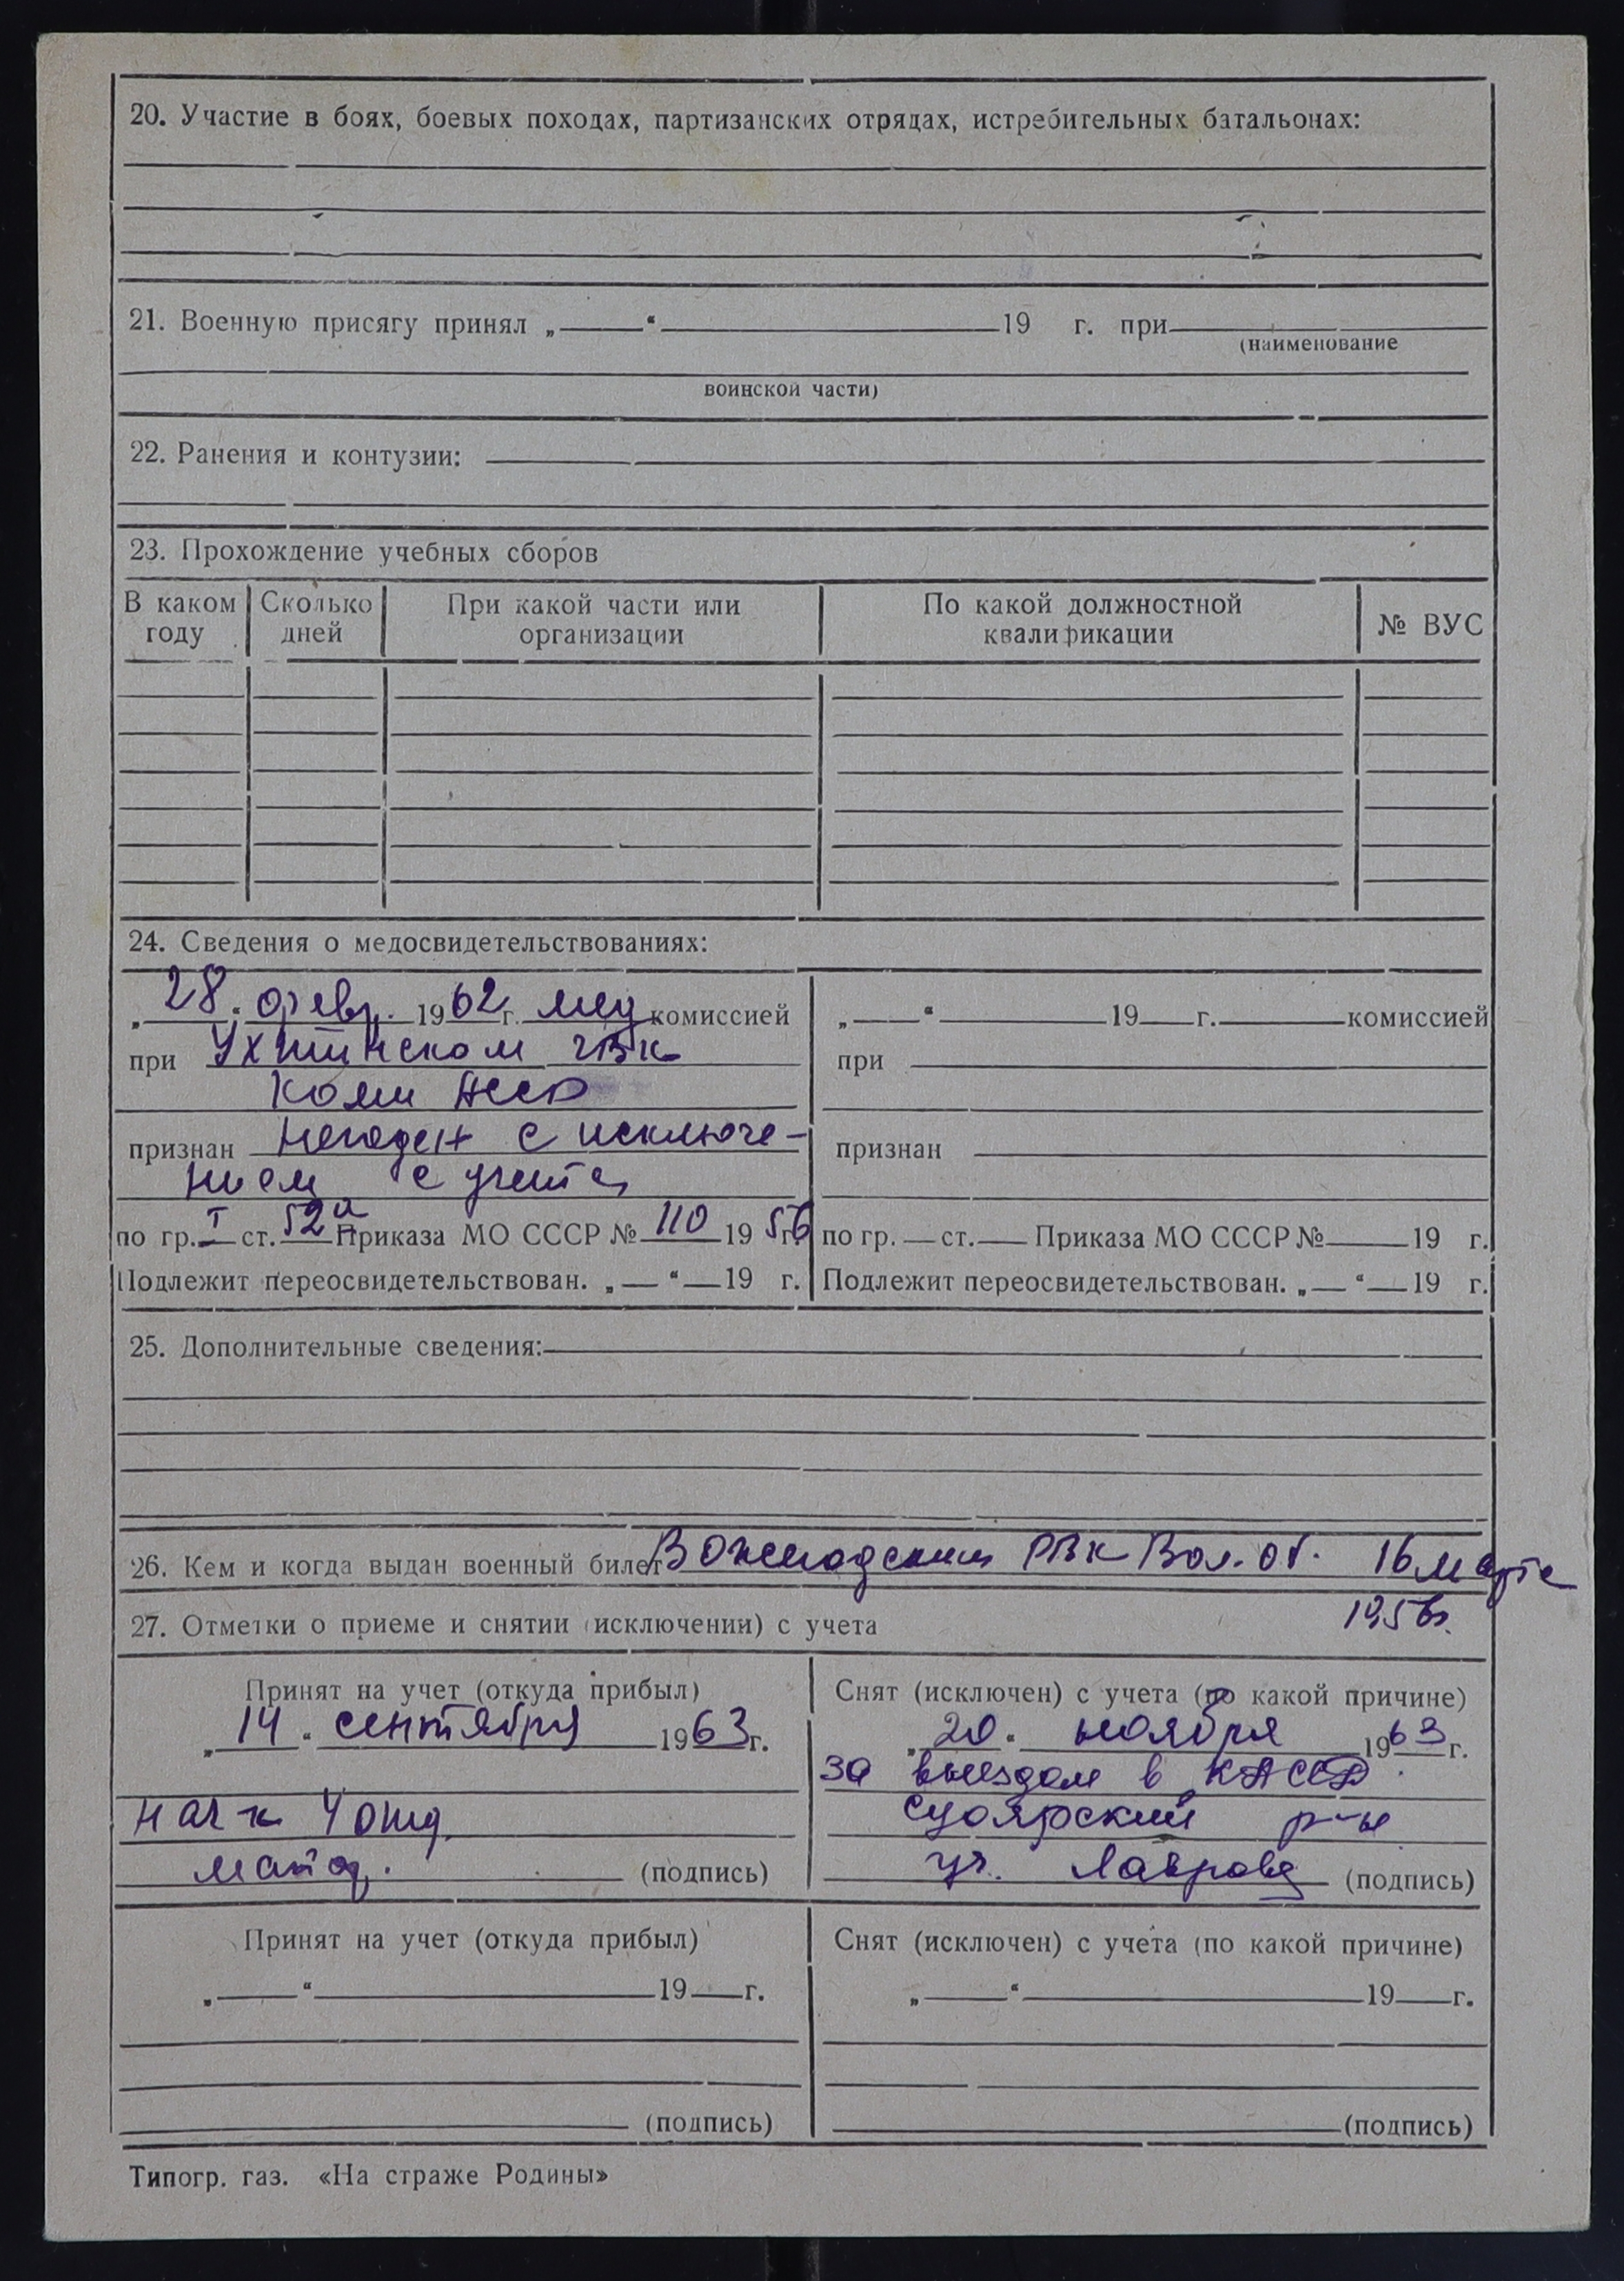 20. Участие в боях, боевых походах, партизанских отрядах, истребительных батальонах:
21. Военную присягу принял „ “ 19 г. при
(наименование
воинской части)
22. Ранения и контузии:
23. Прохождение учебных сборов
В каком году
Сколько дней
При какой части или организации
По какой должностной квалификации
№ ВУС
24. Сведения о медосвидетельствованиях:
„28“ февр. 1962 г. мед комиссией
при Ухтинском ГВК
Коми АССР
признан Негоден с исключе-
нием с учета
по гр. I ст. 52а Приказа МО СССР № 110 1956 г.
Подлежит переосвидетельствован. „ “ 19 г.
„ “ 19 г. комиссией
при
признан
по гр. ст. Приказа МО СССР № 19 г.
Подлежит переосвидетельствован. „ “ 19 г.
25. Дополнительные сведения:
26. Кем и когда выдан военный билет Вожегодским РВК Вол. об. 16 марта
1956г.
27. Отметки о приеме и снятии (исключении) с учета
Принят на учет (откуда прибыл)
„14“ сентября 1963 г.
нач к 4 отд
майор. (подпись)
Снят (исключен) с учета (по какой причине)
„20“ ноября 1963 г.
за выездом в КАССР.
Суоярский р-н
(подпись)
Принят на учет (откуда прибыл)
„ “ 19 г.
(подпись)
Снят (исключен) с учета (по какой причине)
„ “ 19 г.
(подпись)
Типогр. газ. «На страже Родины»